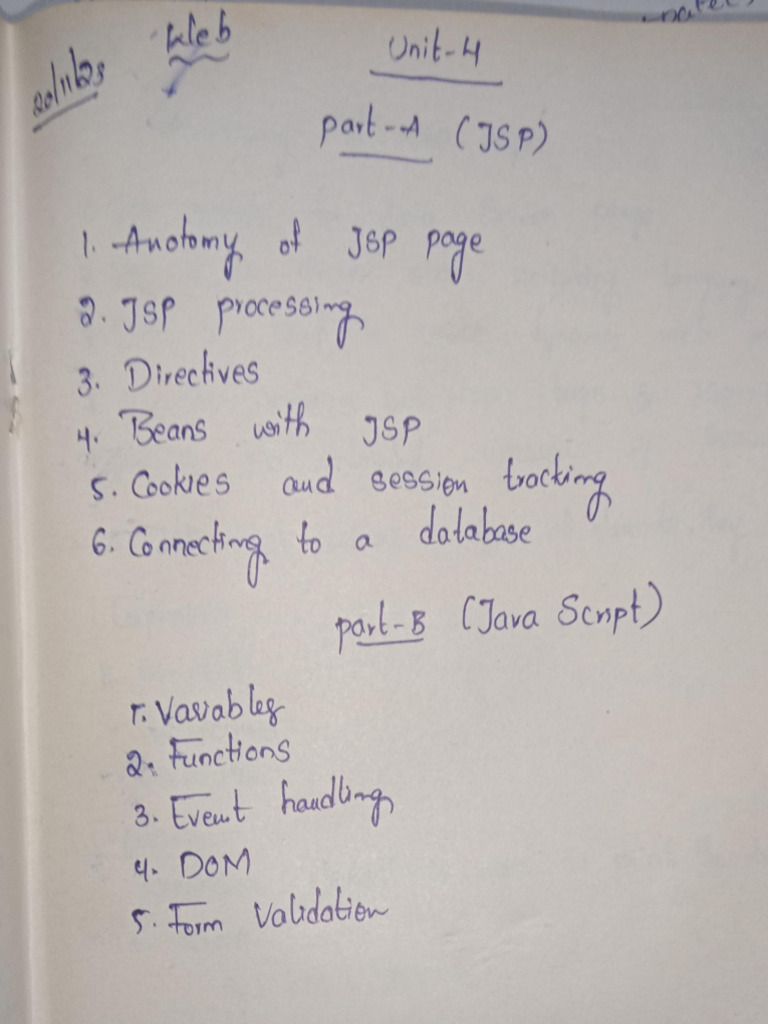 20/11/23
Web
Unit-4
part-A (JSP)
1. Anotomy of JSP page
2. JSP processing
3. Directives
4. Beans with JSP
5. Cookies and session tracking
6. Connecting to a database
part-B (Java Script)
1. Variables
2. Functions
3. Event handling
4. DOM
5. Form Validation